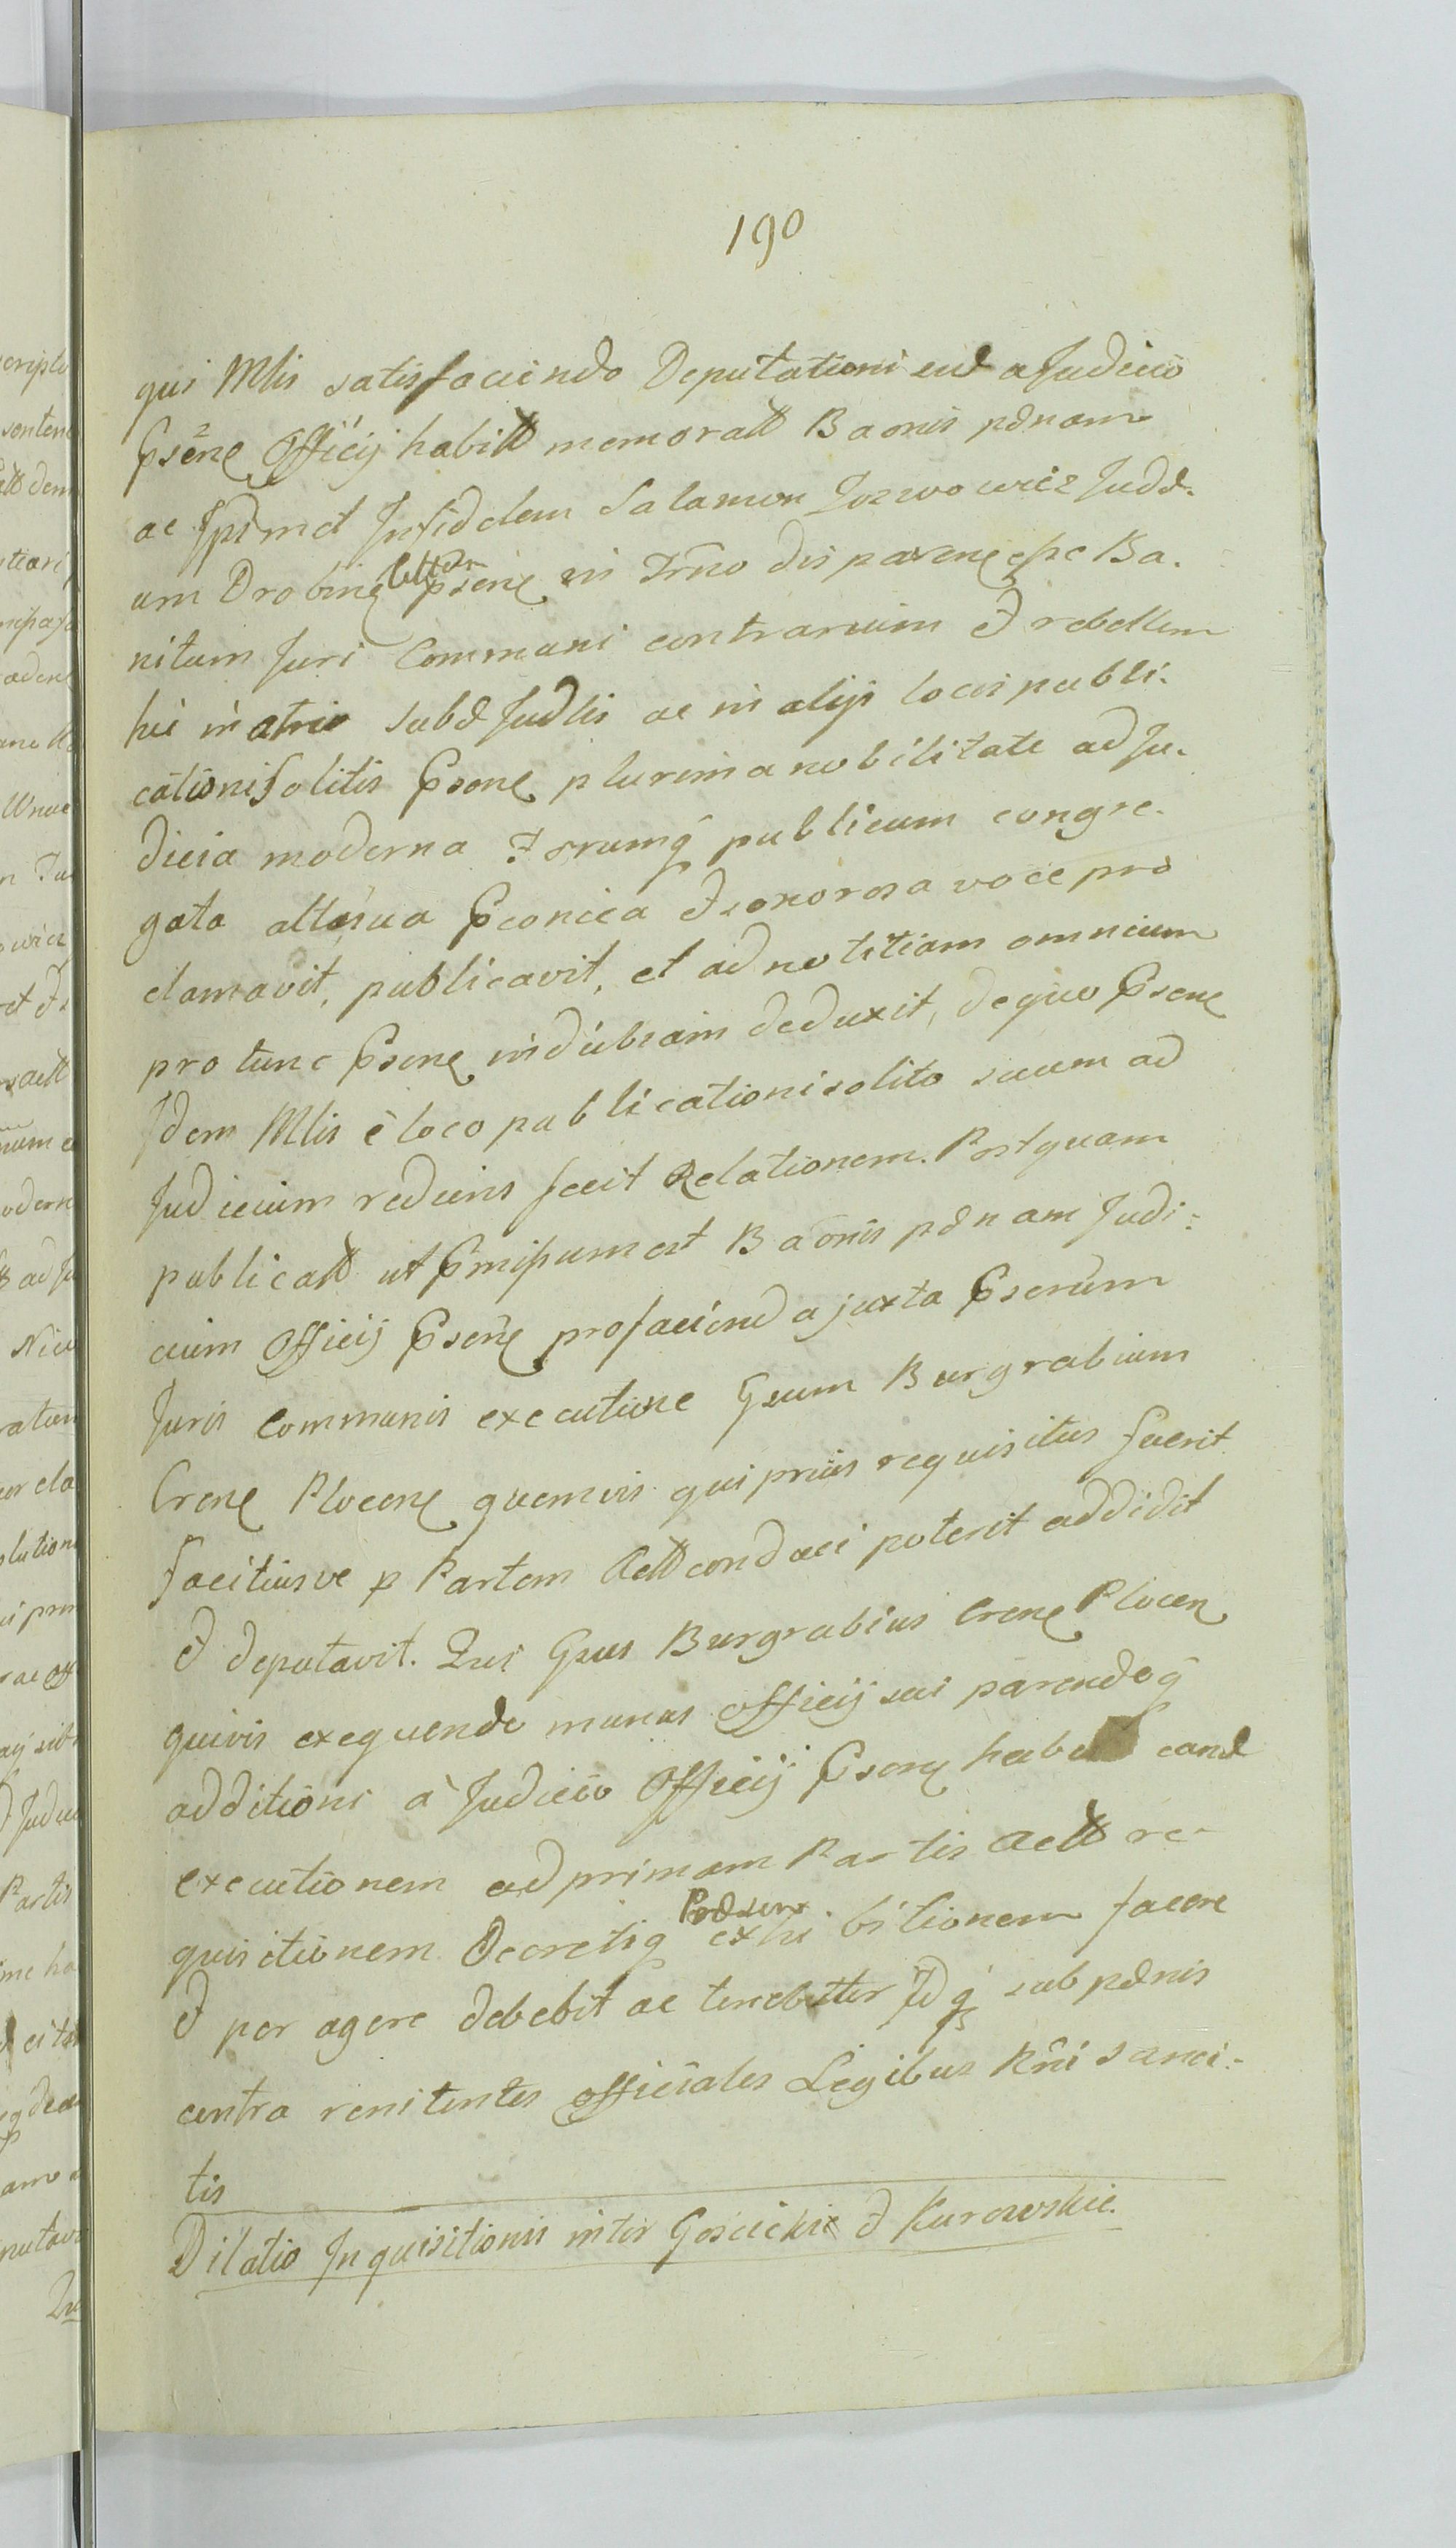 190
qui Mlis satisfaciendo Deputationi sud a Judicio
Psene Officij habitt memoratt Baonis pdnam
ac Ipsmet Infidelem Salamon Joswowicz Judd.
um Drobine Psene in Trno disparene esse Ba.
nitum Juri Communi contrarium et rebellem
hic in atrio subd Judlis ac in alijs locis publi.
cationi solitis Psene plurima nobilitate ad Ju.
dicia moderna Forumq publicum congre.
gata alta sua Pconica et sonorosa voce pro
clamavit, publicavit, et ad notitiam omnium
pro tunc Psene indubiam deduxit, de quo Psene
Idem Mlis è loco publicationi solito suum ad
Judicium rediens fecit Relationem. Postquam
publicatt ut Pmissum est Baonis pdnam Judi:
cium Officij Psene pro facienda juxta Pserum
Juris Communis executione Gsum Burgrabium
Crene Plocene quemvis qui prius requisitus fuerit
facitiusve p Partem Actt conduci poterit addidit
et deputavit. Qui Gsus Burgrabius Crene Plocen
quivis exequendo munus officij sui parendoq
additioni à Judicio Officij Psene eand
executionem ad primam Partis Actt re-
quisitionem Decretiq exhibitionem facere
et per agere debebit ac tenebitur Idq sub pdnis
contra renitentes officiales Legibus Rni sanci:
tis
Dilatio Inquisitionis inter Goscickie et Kurowskie.